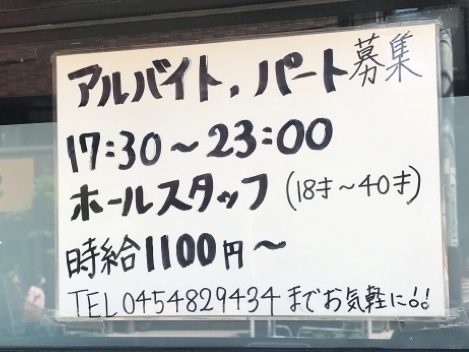 アルバイト,パート募集
17:30～23:00
ホールスタッフ(18才～40才)
時給1100円～
TEL0454829434までお気軽に!!